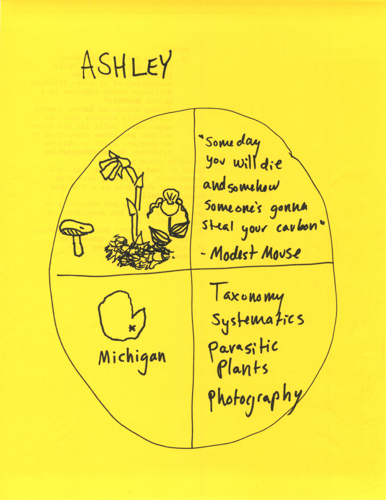 ASHLEY
"Someday
you will die
and somehow
someone's gonna
steal your carbon"
- Modest Mouse
Michigan
Taxonomy
Systematics
Parasitic
Plants
Photography